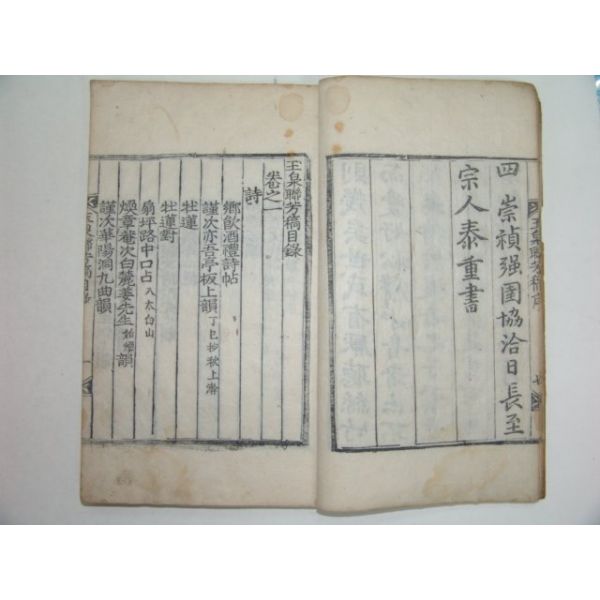 四 崇禎强圉協洽日長至
宗人泰重書
玉泉聯芳稿目錄
卷之一
詩
鄉飮酒禮詩帖
謹次亦吾亭板上韻 丁巳抄秋上澣
牡蓮
牡蓮對
扇坪路中口占 入太白山
煥章菴次白麓姜先生 韻
謹次華陽洞九曲韻